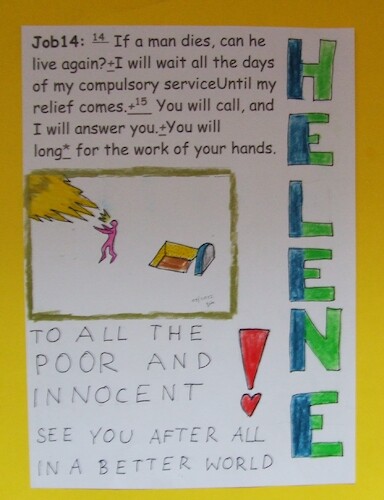 Job14: 14 If a man dies, can he
live again?+I will wait all the days
of my compulsory serviceUntil my
relief comes.+15 You will call, and
I will answer you.+You will
long* for the work of your hands.
HELENE
TO ALL THE
POOR AND
INNOCENT
!
SEE YOU AFTER ALL
IN A BETTER WORLD